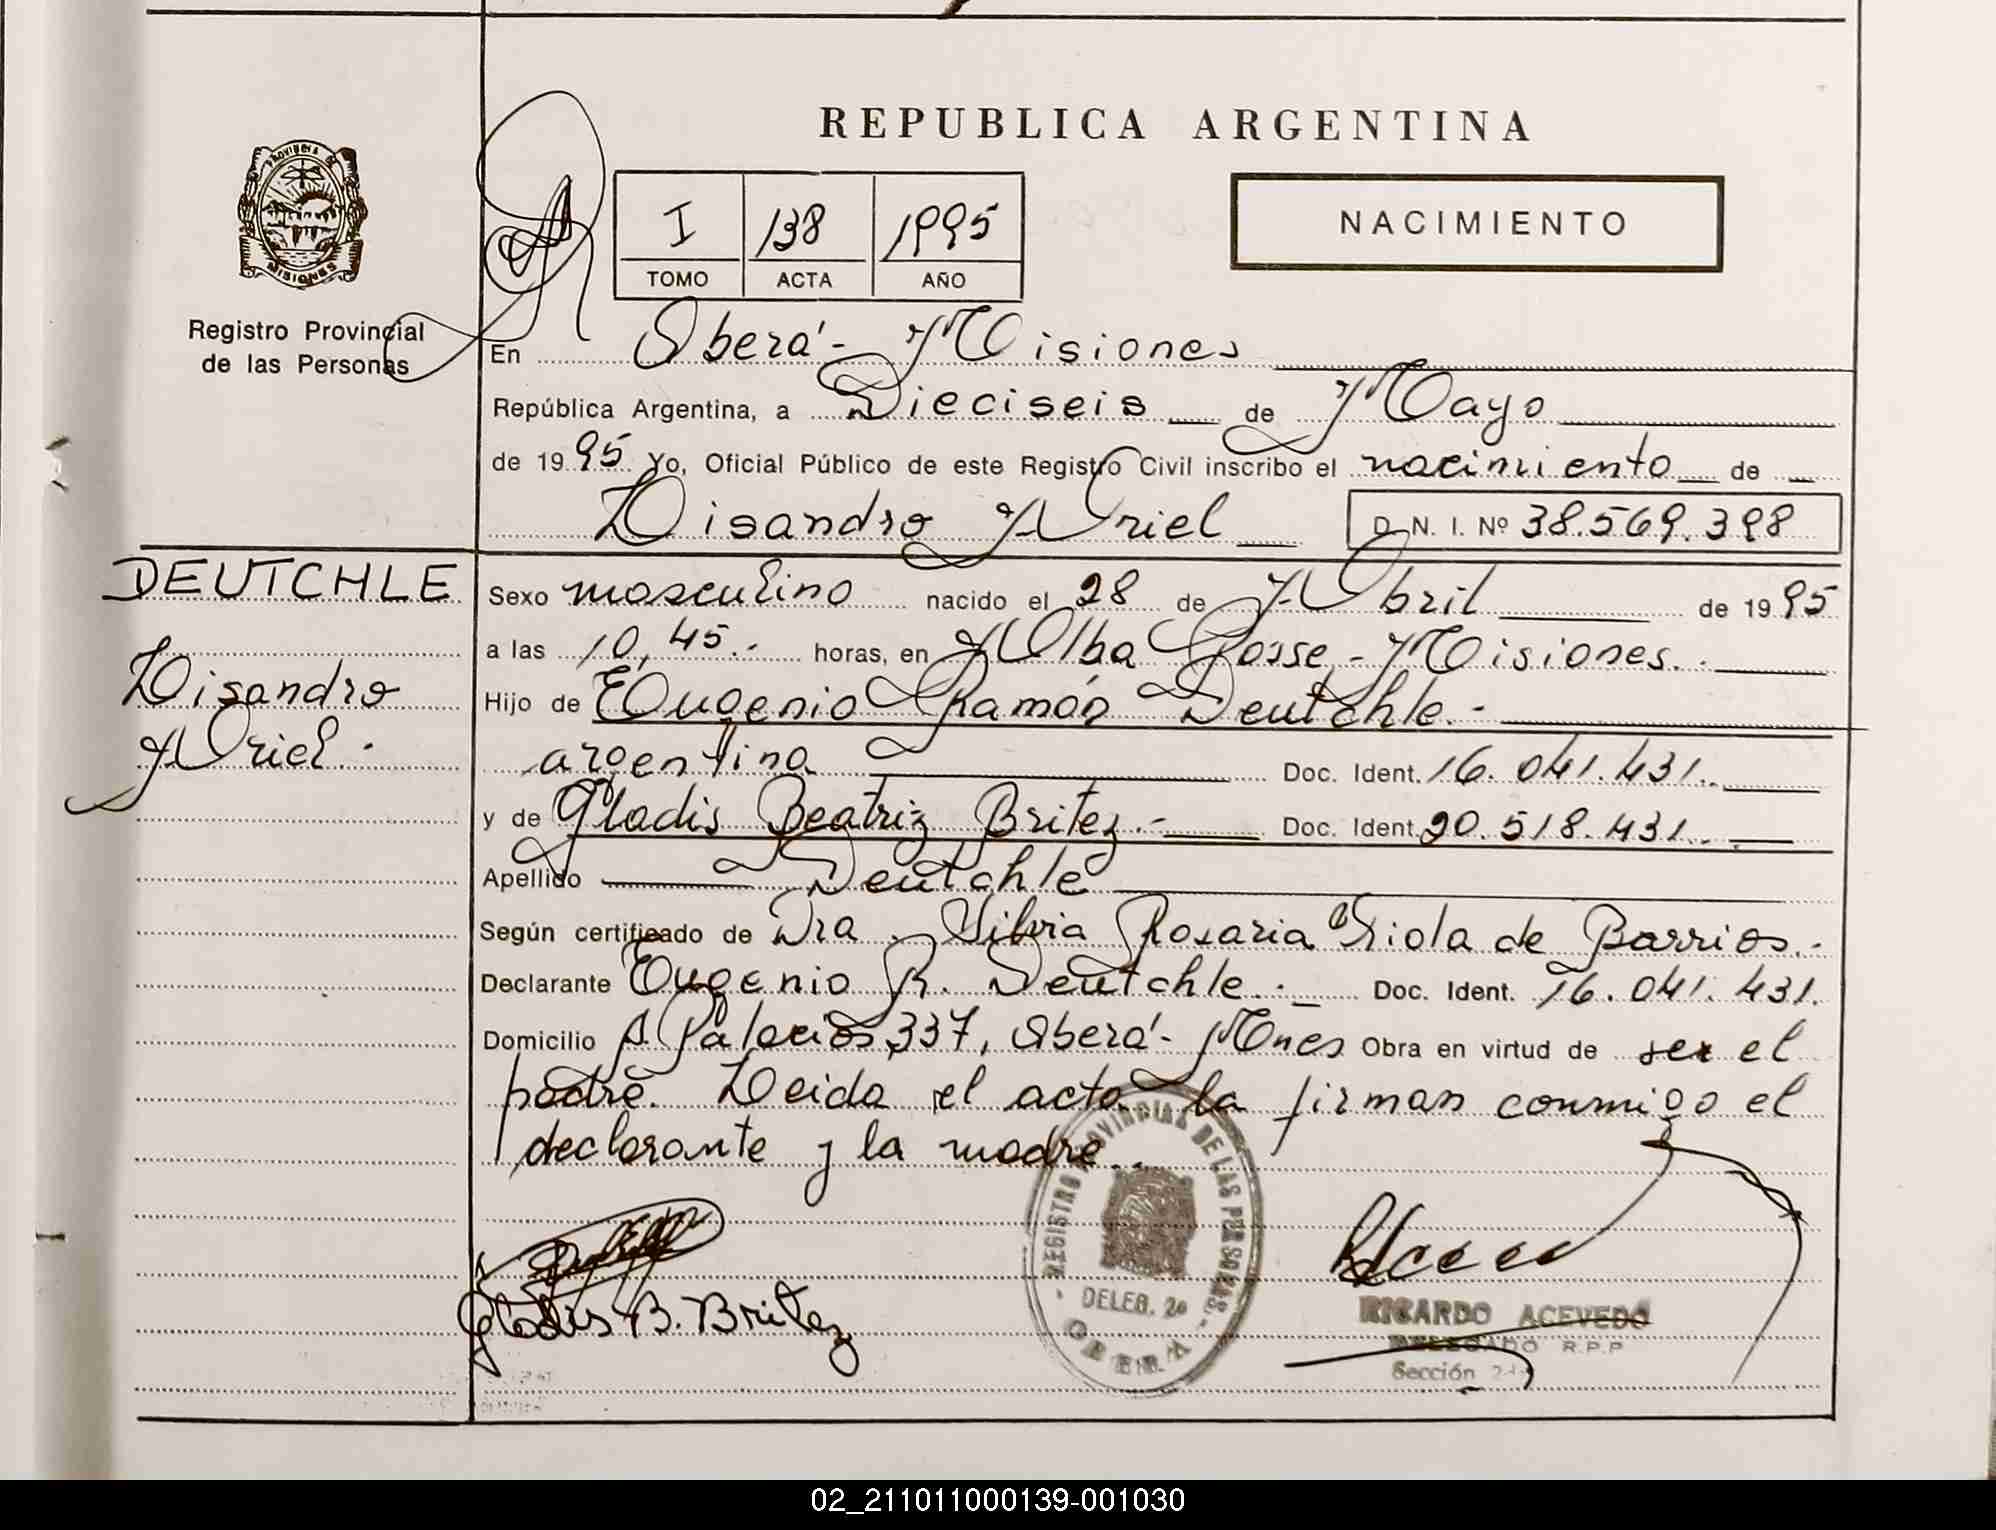 REPUBLICA ARGENTINA
PROVINCIA DE
MISIONES
Registro Provincial
de las Personas
I 138 1995
TOMO ACTA AÑO
NACIMIENTO
En Oberá - Misiones
República Argentina, a Dieciseis de Mayo
de 1995 Yo, Oficial Público de este Registro Civil inscribo el nacimiento de
Lisandro Uriel D. N. I. Nº 38.569.398
DEUTCHLE
Lisandro
Uriel.
Sexo masculino nacido el 28 de Abril de 1995
a las 10,45.- horas, en Alba Posse - Misiones.-
Hijo de Eugenio Ramón Deutchle.-
argentina Doc. Ident. 16.041.431.
y de Gladis Beatriz Britez.- Doc. Ident. 20.518.431.
Apellido Deutchle
Según certificado de Dra. Silvia Rosaria Griola de Barrios.-
Declarante Eugenio R. Deutchle.- Doc. Ident. 16.041.431.
Domicilio A. Palacios 337, Oberá - Mnes Obra en virtud de ser el
padre. Leida el acta la firman conmigo el
declarante y la madre..
REGISTRO PROVINCIAL DE LAS PERSONAS
DELEG. 2a
OBERA
Gladis B. Britez
RICARDO ACEVEDO
DELEGADO R.P.P
Sección
02_211011000139-001030